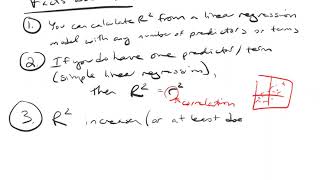 1. You can calculate R² from a linear regression
model with any number of predictors or terms
2. If you do have one predictor/term
(simple linear regression),
then R² = r²
correlation
3. R² increases (or at least doe